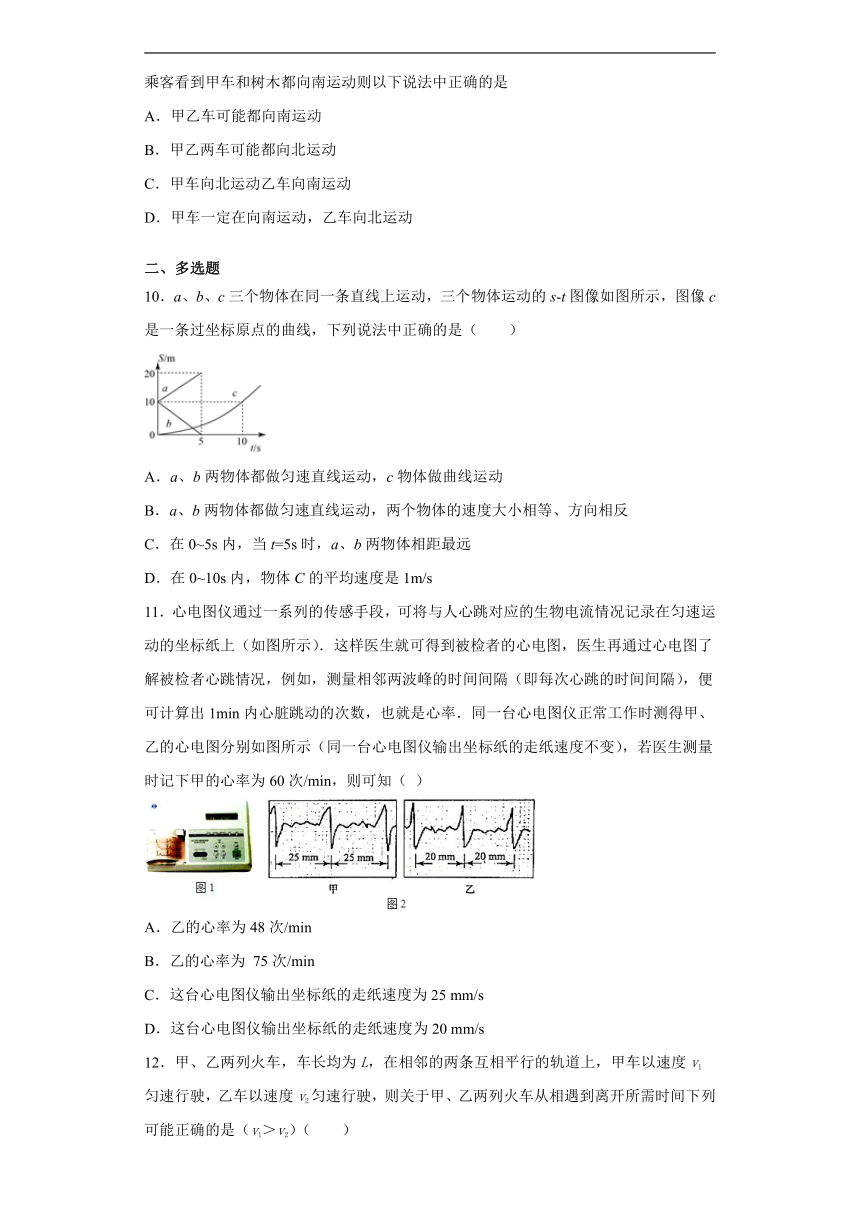 乘客看到甲车和树木都向南运动则以下说法中正确的是
A．甲乙车可能都向南运动
B．甲乙两车可能都向北运动
C．甲车向北运动乙车向南运动
D．甲车一定在向南运动，乙车向北运动
二、多选题
10．a、b、c 三个物体在同一条直线上运动，三个物体运动的 s-t 图像如图所示，图像 c
是一条过坐标原点的曲线，下列说法中正确的是（　　）
S/m
20
a
c
10
b
0
5
10
t/s
A．a、b 两物体都做匀速直线运动，c 物体做曲线运动
B．a、b 两物体都做匀速直线运动，两个物体的速度大小相等、方向相反
C．在 0~5s 内，当 t=5s 时，a、b 两物体相距最远
D．在 0~10s 内，物体 C 的平均速度是 1m/s
11．心电图仪通过一系列的传感手段，可将与人心跳对应的生物电流情况记录在匀速运
动的坐标纸上（如图所示）．这样医生就可得到被检者的心电图，医生再通过心电图了
解被检者心跳情况，例如，测量相邻两波峰的时间间隔（即每次心跳的时间间隔），便
可计算出 1min 内心脏跳动的次数，也就是心率．同一台心电图仪正常工作时测得甲、
乙的心电图分别如图所示（同一台心电图仪输出坐标纸的走纸速度不变），若医生测量
时记下甲的心率为 60 次/min，则可知（ ）
25 mm 25 mm
20 mm 20 mm
图1
甲
乙
图2
A．乙的心率为 48 次/min
B．乙的心率为 75 次/min
C．这台心电图仪输出坐标纸的走纸速度为 25 mm/s
D．这台心电图仪输出坐标纸的走纸速度为 20 mm/s
12．甲、乙两列火车，车长均为 L，在相邻的两条互相平行的轨道上，甲车以速度 v₁
匀速行驶，乙车以速度 v₂ 匀速行驶，则关于甲、乙两列火车从相遇到离开所需时间下列
可能正确的是（v₁＞v₂）（　　）